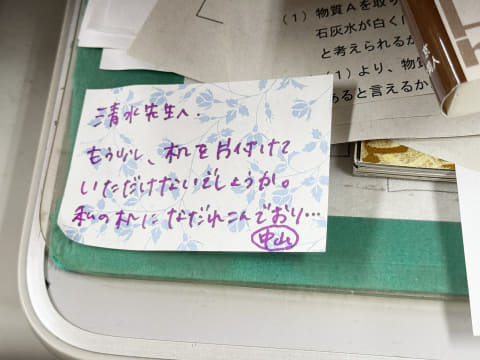 (1) 物質Aを取り
石灰水が白く
と考えられるか
(1)より、物質
あると言えるか
清水先生へ.
もう少し、机を片付けて
いただけないでしょうか。
私の机になだれこんでおり…
中山